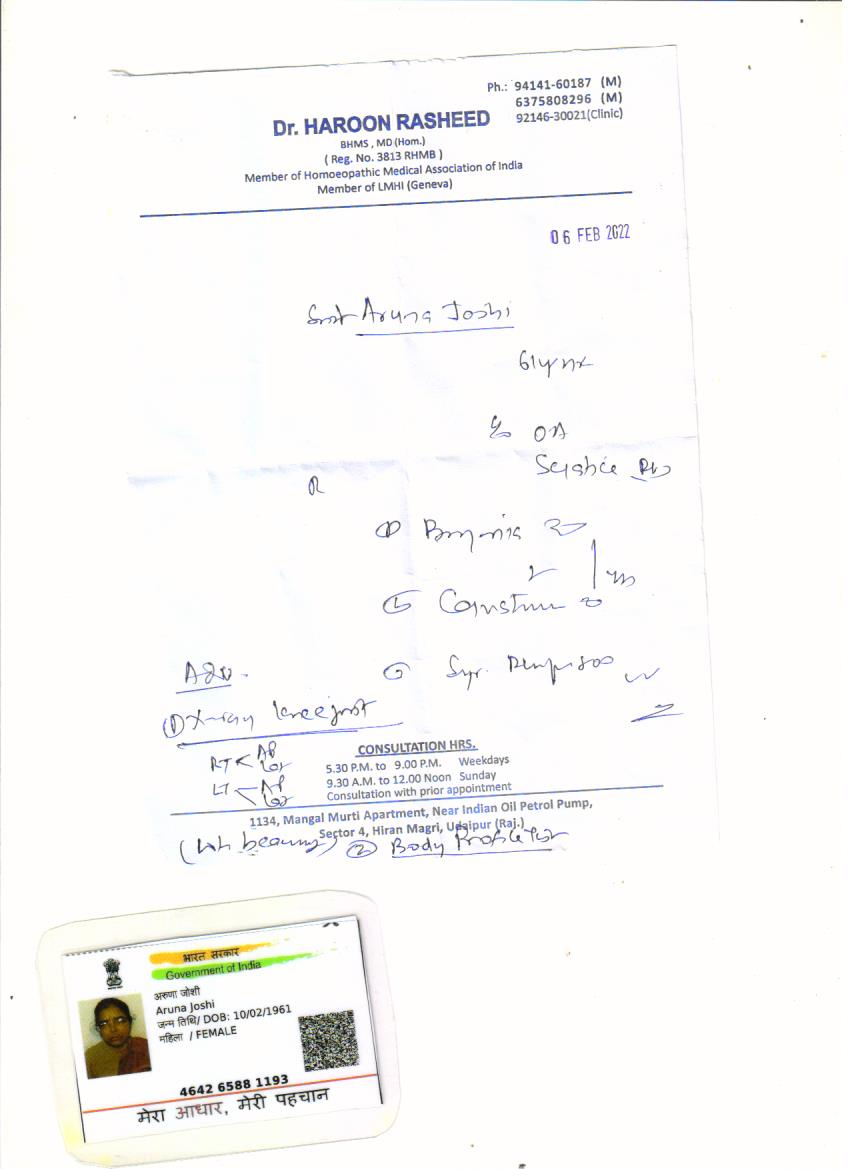 Ph.: 94141-60187 (M)
6375808296 (M)
92146-30021(Clinic)
Dr. HAROON RASHEED
BHMS , MD (Hom.)
( Reg. No. 3813 RHMB )
Member of Homoeopathic Medical Association of India
Member of LMHI (Geneva)
06 FEB 2022
Smt Aruna Joshi
OA
Syr.
Adv.
① X-ray knee joint
RT < AP
LT < AP
CONSULTATION HRS.
5.30 P.M. to 9.00 P.M. Weekdays
9.30 A.M. to 12.00 Noon Sunday
Consultation with prior appointment
1134, Mangal Murti Apartment, Near Indian Oil Petrol Pump,
Sector 4, Hiran Magri, Udaipur (Raj.)
② Body Profile
भारत सरकार
Government of India
अरुणा जोशी
Aruna Joshi
जन्म तिथि/ DOB: 10/02/1961
महिला / FEMALE
4642 6588 1193
मेरा आधार, मेरी पहचान